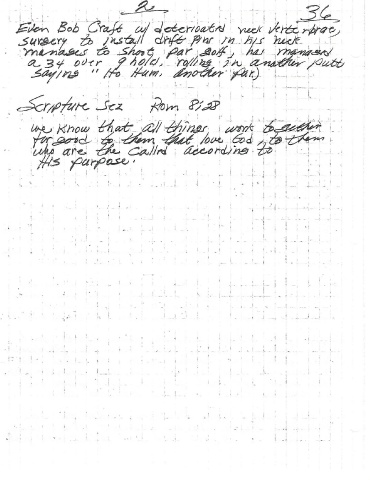 36
Even Bob Craft w/ deteriorated neck vertebrae,
surgery to install drift pins in his neck
manages to shoot par golf, has managed
a 34 over 9 hold. rolling in another putt
saying "Ho Hum. another par)
Scripture Sez Rom 8:28
we know that all things work together
for good to them that love God, to them
who are the called according to
His purpose.